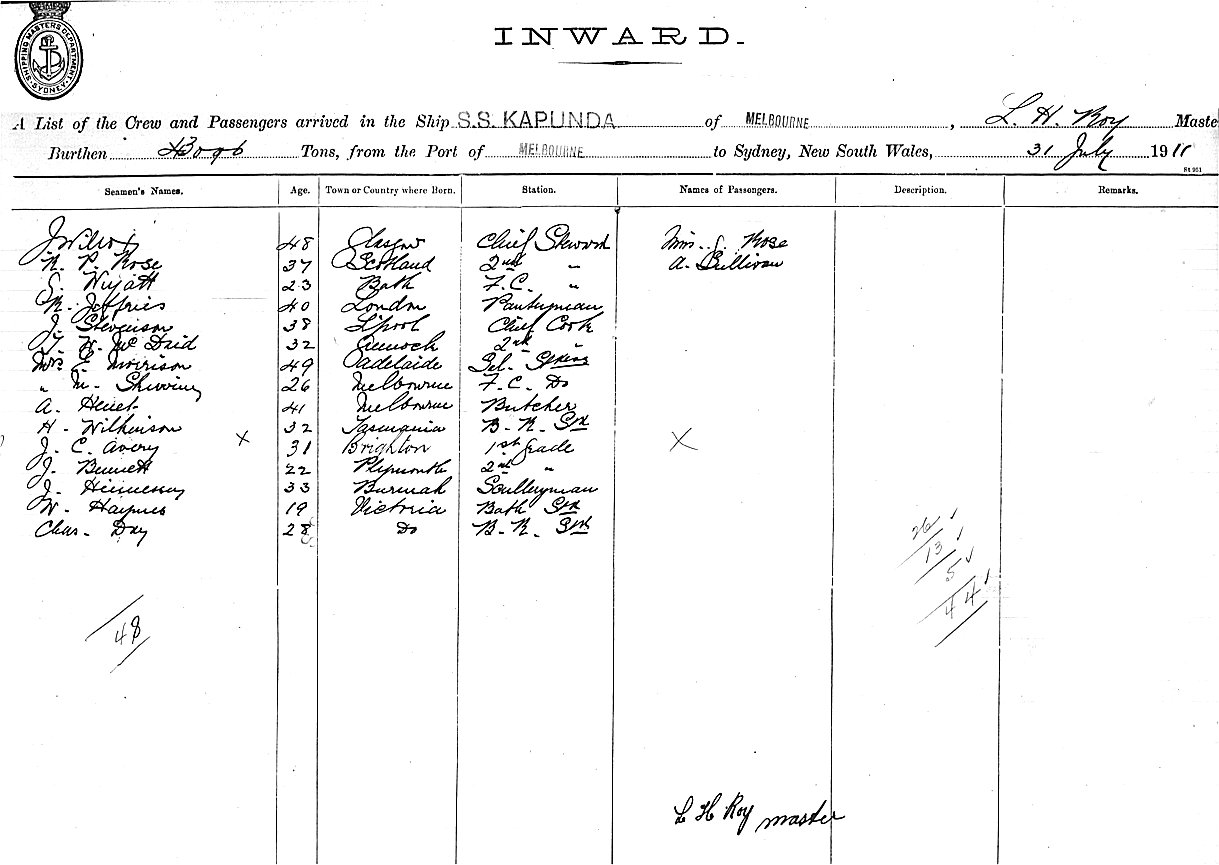 SHIPPING MASTERS DEPARTMENT
SYDNEY
INWARD.
A List of the Crew and Passengers arrived in the Ship S.S. KAPUNDA of MELBOURNE, L. H. Roy Maste
Burthen Tons, from the Port of MELBOURNE to Sydney, New South Wales, 31 July 1911
St 961
Seamen's Names. Age. Town or Country where Born. Station. Names of Passengers. Description. Remarks.
J Wilson 48 Glasgow Chief Steward Mrs. J. Rose
R. P. Rose 37 Scotland 2nd " A. Sullivan
Wyatt 23 Bath F.C. "
R. Jeffries 40 London Pantryman
J. Stevenson 38 L'pool Chief Cook
W. McDaid 32 Greenock 2nd "
Mrs E. Morrison 49 Adelaide
" M. 26 Melbourne F.C. Do
A. 41 Melbourne Butcher
H. Wilkinson 32 Tasmania B. R. Std
J. C. Avery X 31 Brighton 1st Grade X
J. Bennett 22 Plymouth 2nd "
J. Hennessy 33 Burmah Sculleryman
W. Haynes 19 Victoria Bath Std
Chas. Day 28 Do B. R. Std
26
13
5
44
48
L H Roy master